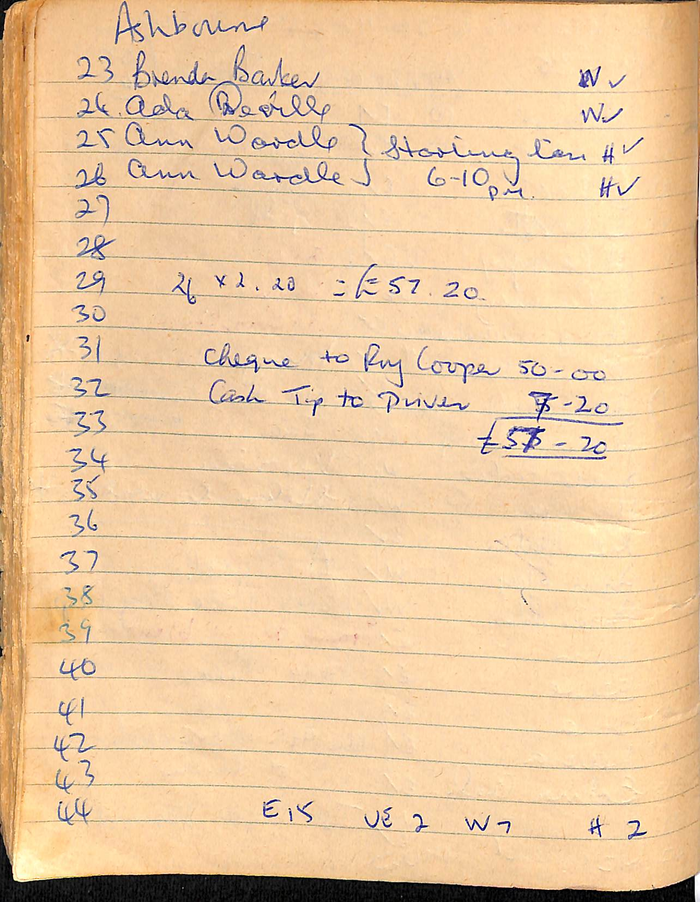 Ashbourne
23 Brenda Barker W ✓
24. Ada Neville W✓
25 Ann Wardle } H ✓
26 Ann Wardle } 6-10 pm. H✓
27
28
29 26 × 2.20 = £57.20
30
31 Cheque to Roy Cooper 50-00
32 Cash Tip to Driver 7-20
33 £57-20
34
35
36
37
38
39
40
41
42
43
44 E 15 UE 2 W 7 H 2